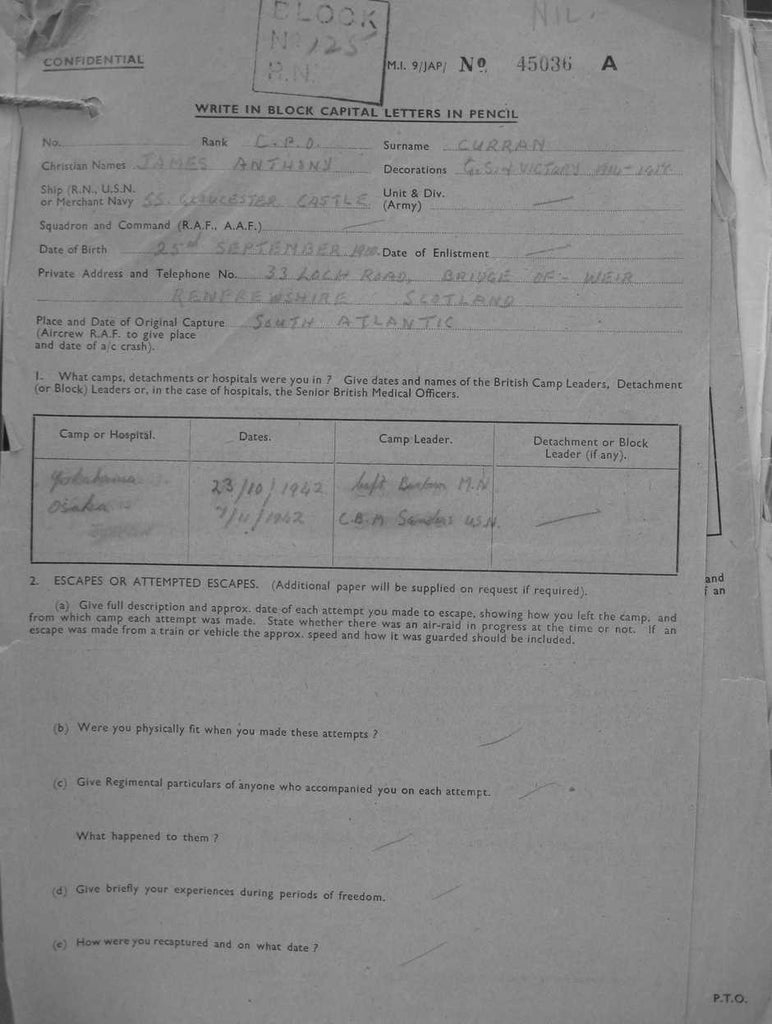 BLOCK
No 125
R.N.
NIL.
CONFIDENTIAL
M.I. 9/JAP/ No 45036 A
WRITE IN BLOCK CAPITAL LETTERS IN PENCIL
No. Rank C.P.O. Surname CURRAN
Christian Names JAMES ANTHONY Decorations G.S. & VICTORY 1914-
Ship (R.N., U.S.N. or Merchant Navy SS. GLOUCESTER CASTLE Unit & Div. (Army)
Squadron and Command (R.A.F., A.A.F.)
Date of Birth 25th SEPTEMBER Date of Enlistment
Private Address and Telephone No. 33 LOCH ROAD, BRIDGE OF - WEIR
RENFREWSHIRE SCOTLAND
Place and Date of Original Capture SOUTH ATLANTIC
(Aircrew R.A.F. to give place
and date of a/c crash).
1. What camps, detachments or hospitals were you in ? Give dates and names of the British Camp Leaders, Detachment
(or Block) Leaders or, in the case of hospitals, the Senior British Medical Officers.
Camp or Hospital. Dates. Camp Leader. Detachment or Block Leader (if any).
Yokohama 23/10/1942 M.N
Osaka /11/1942 C.B.M. Sanders U.S.N.
2. ESCAPES OR ATTEMPTED ESCAPES. (Additional paper will be supplied on request if required).
(a) Give full description and approx. date of each attempt you made to escape, showing how you left the camp, and
from which camp each attempt was made. State whether there was an air-raid in progress at the time or not. If an
escape was made from a train or vehicle the approx. speed and how it was guarded should be included.
and
f an
(b) Were you physically fit when you made these attempts ?
(c) Give Regimental particulars of anyone who accompanied you on each attempt.
What happened to them ?
(d) Give briefly your experiences during periods of freedom.
(e) How were you recaptured and on what date ?
P.T.O.